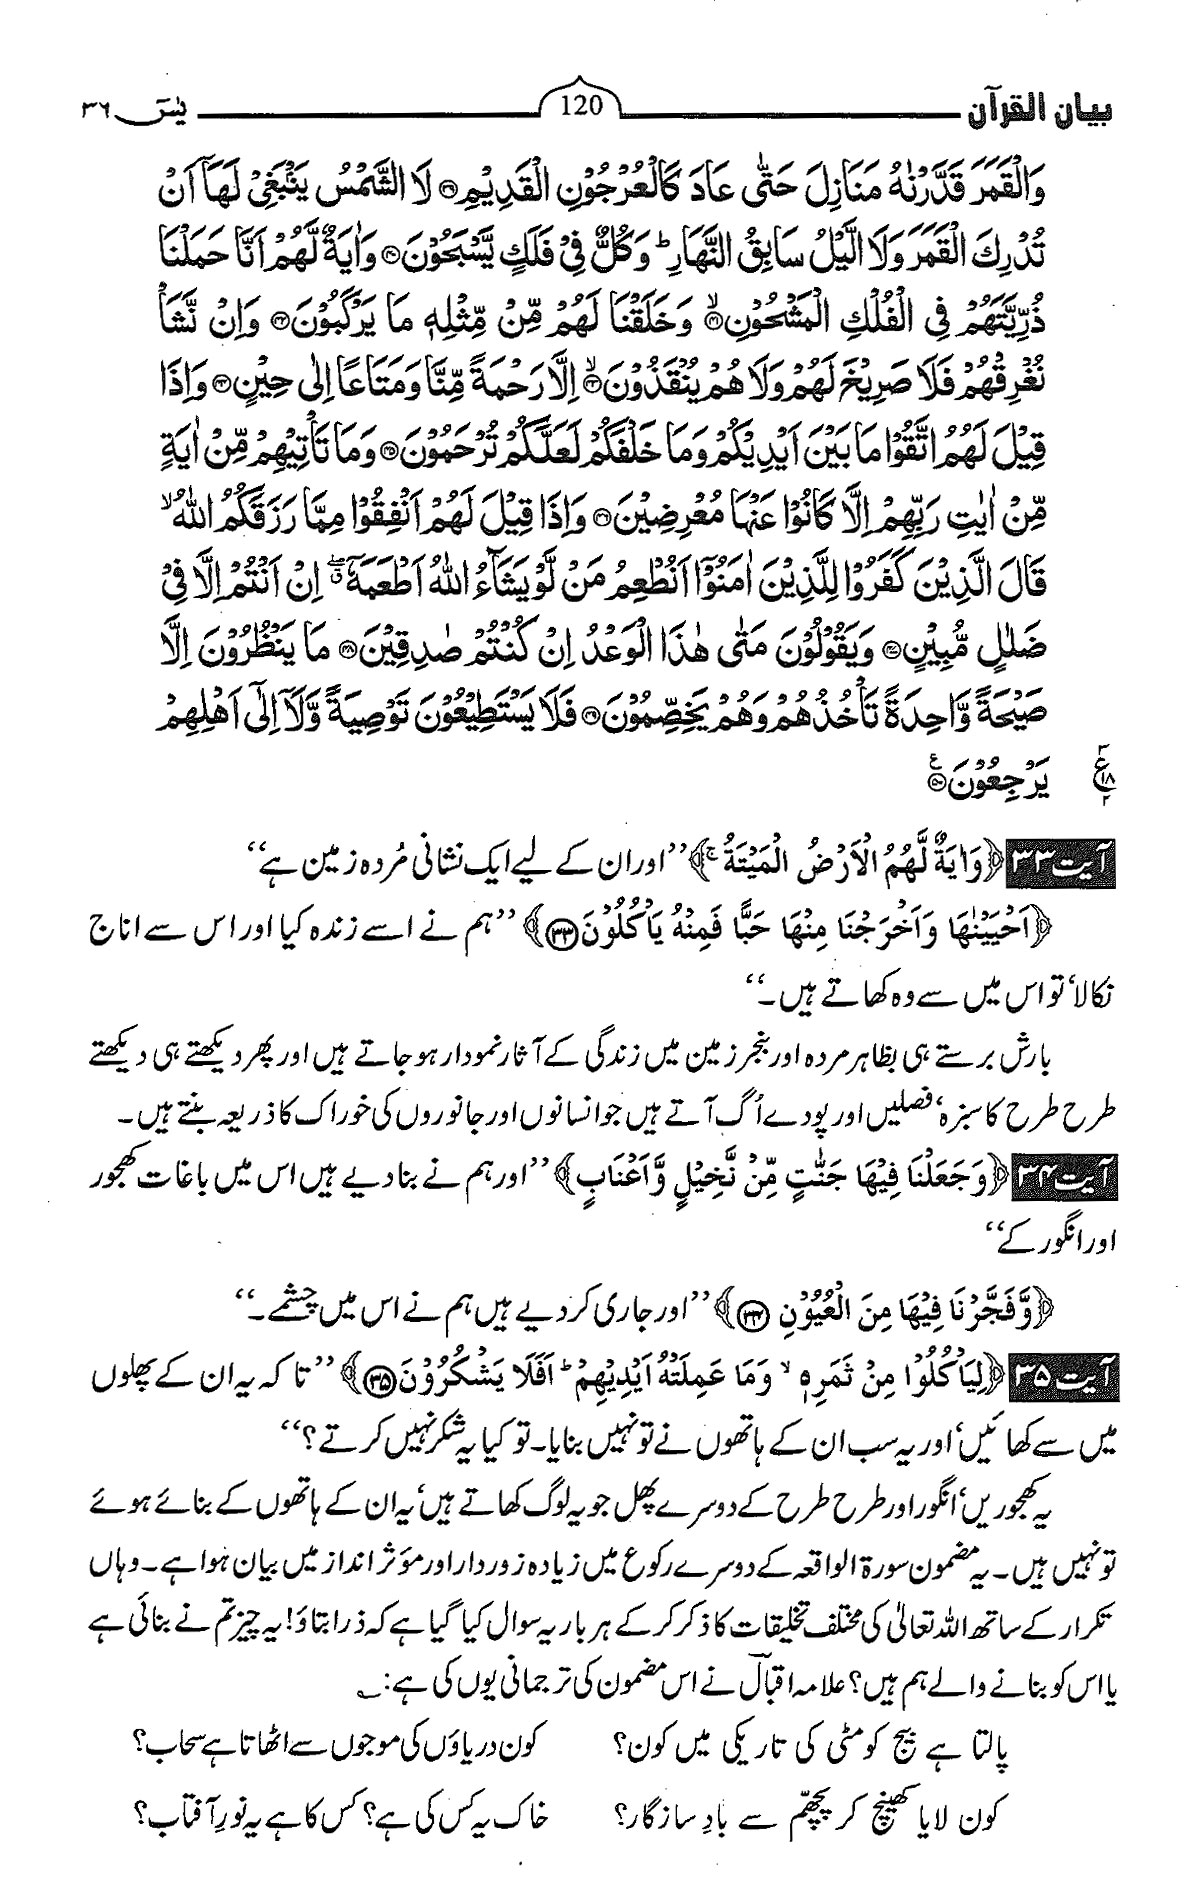 بیان القرآن 120 یٰسٓ ۳۶
وَالْقَمَرَ قَدَّرْنٰهُ مَنَازِلَ حَتّٰی عَادَ كَالْعُرْجُوْنِ الْقَدِیْمِ۳۹ لَا الشَّمْسُ یَنْۢبَغِیْ لَهَاۤ اَنْ
تُدْرِكَ الْقَمَرَ وَلَا الَّیْلُ سَابِقُ النَّهَارِ ؕ وَكُلٌّ فِیْ فَلَكٍ یَّسْبَحُوْنَ۴۰ وَاٰیَةٌ لَّهُمْ اَنَّا حَمَلْنَا
ذُرِّیَّتَهُمْ فِی الْفُلْكِ الْمَشْحُوْنِ۴۱ۙ وَخَلَقْنَا لَهُمْ مِّنْ مِّثْلِهٖ مَا یَرْكَبُوْنَ۴۲ وَاِنْ نَّشَاْ
نُغْرِقْهُمْ فَلَا صَرِیْخَ لَهُمْ وَلَا هُمْ یُنْقَذُوْنَ۴۳ۙ اِلَّا رَحْمَةً مِّنَّا وَمَتَاعًا اِلٰی حِیْنٍ۴۴ وَاِذَا
قِیْلَ لَهُمُ اتَّقُوْا مَا بَیْنَ اَیْدِیْكُمْ وَمَا خَلْفَكُمْ لَعَلَّكُمْ تُرْحَمُوْنَ۴۵ وَمَا تَاْتِیْهِمْ مِّنْ اٰیَةٍ
مِّنْ اٰیٰتِ رَبِّهِمْ اِلَّا كَانُوْا عَنْهَا مُعْرِضِیْنَ۴۶ وَاِذَا قِیْلَ لَهُمْ اَنْفِقُوْا مِمَّا رَزَقَكُمُ اللّٰهُ ۙ
قَالَ الَّذِیْنَ كَفَرُوْا لِلَّذِیْنَ اٰمَنُوْۤا اَنُطْعِمُ مَنْ لَّوْ یَشَآءُ اللّٰهُ اَطْعَمَهٗۤ ۖۗ اِنْ اَنْتُمْ اِلَّا فِیْ
ضَلٰلٍ مُّبِیْنٍ۴۷ وَیَقُوْلُوْنَ مَتٰی هٰذَا الْوَعْدُ اِنْ كُنْتُمْ صٰدِقِیْنَ۴۸ مَا یَنْظُرُوْنَ اِلَّا
صَیْحَةً وَّاحِدَةً تَاْخُذُهُمْ وَهُمْ یَخِصِّمُوْنَ۴۹ فَلَا یَسْتَطِیْعُوْنَ تَوْصِیَةً وَّلَاۤ اِلٰۤی اَهْلِهِمْ
یَرْجِعُوْنَ۵۰ع ۳ ع ۱۸ ۲
آیت ۳۳ ﴿وَاٰیَةٌ لَّهُمُ الْاَرْضُ الْمَیْتَةُ ۚ﴾ ’’اور ان کے لیے ایک نشانی مُردہ زمین ہے‘‘
﴿اَحْیَیْنٰهَا وَاَخْرَجْنَا مِنْهَا حَبًّا فَمِنْهُ یَاْكُلُوْنَ۳۳﴾ ’’ہم نے اسے زندہ کیا اور اس سے اناج
نکالا‘ تو اس میں سے وہ کھاتے ہیں۔‘‘
بارش برستے ہی بظاہر مردہ اور بنجر زمین میں زندگی کے آثار نمودار ہو جاتے ہیں اور پھر دیکھتے ہی دیکھتے
طرح طرح کا سبزہ‘ فصلیں اور پودے اُگ آتے ہیں جو انسانوں اور جانوروں کی خوراک کا ذریعہ بنتے ہیں۔
آیت ۳۴ ﴿وَجَعَلْنَا فِیْهَا جَنّٰتٍ مِّنْ نَّخِیْلٍ وَّاَعْنَابٍ﴾ ’’اور ہم نے بنا دیے ہیں اس میں باغات کھجور
اور انگور کے‘‘
﴿وَّفَجَّرْنَا فِیْهَا مِنَ الْعُیُوْنِ۳۴﴾ ’’اور جاری کر دیے ہیں ہم نے اس میں چشمے۔‘‘
آیت ۳۵ ﴿لِیَاْكُلُوْا مِنْ ثَمَرِهٖ ۙ وَمَا عَمِلَتْهُ اَیْدِیْهِمْ ؕ اَفَلَا یَشْكُرُوْنَ۳۵﴾ ’’تا کہ یہ ان کے پھلوں
میں سے کھائیں‘ اور یہ سب ان کے ہاتھوں نے تو نہیں بنایا۔ تو کیا یہ شکر نہیں کرتے؟‘‘
یہ کھجوریں‘ انگور اور طرح طرح کے دوسرے پھل جو یہ لوگ کھاتے ہیں‘ یہ ان کے ہاتھوں کے بنائے ہوئے
تو نہیں ہیں۔ یہ مضمون سورۃ الواقعہ کے دوسرے رکوع میں زیادہ زور دار اور مؤثر انداز میں بیان ہوا ہے۔ وہاں
تکرار کے ساتھ اللہ تعالیٰ کی مختلف تخلیقات کا ذکر کر کے ہر بار یہ سوال کیا گیا ہے کہ ذرا بتاؤ! یہ چیز تم نے بنائی ہے
یا اس کو بنانے والے ہم ہیں؟ علامہ اقبالؔ نے اس مضمون کی ترجمانی یوں کی ہے: ؎
پالتا ہے بیج کو مٹی کی تاریکی میں کون؟ کون دریاؤں کی موجوں سے اٹھاتا ہے سحاب؟
کون لایا کھینچ کر پچھّم سے بادِ سازگار؟ خاک یہ کس کی ہے؟ کس کا ہے یہ نورِ آفتاب؟